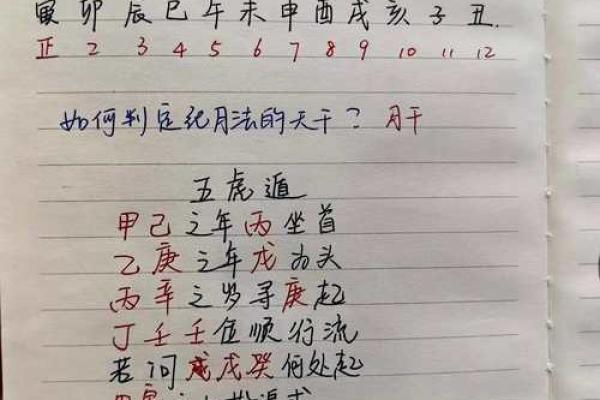 寅卯辰巳午未申酉戌亥子丑.
正 2 3 4 5 6 7 8 9 10 11 12
如何判定纪月法的天干？ 月干
五虎遁
甲己之年丙坐首
乙庚之年戊为头
丙辛之岁寻庚起
丁壬壬位顺行流
若问戊癸何处起